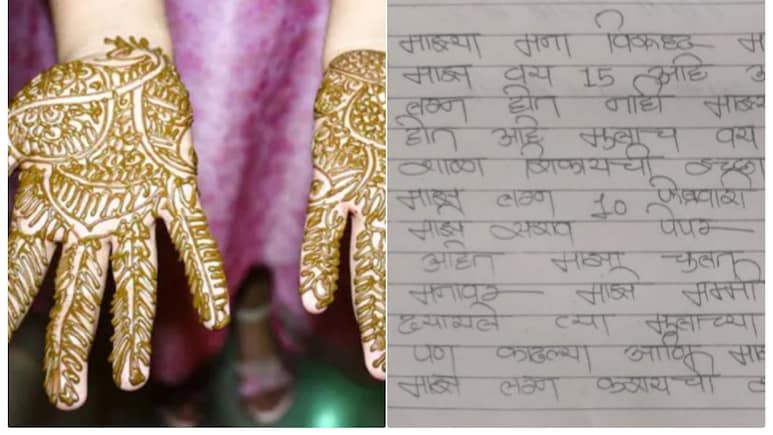 माझ्या मना विरूद्ध म
माझ वय 15 आहे
लग्न होत नाही माझ
होत आहे मुलाच वय
शिकायची इच्छा
माझे लग्न 10 फेब्रुवारी
माझे सराव पेपर
आहेत माझा चुलत
माझे मम्मी
त्या मुलाच्या
पण काढल्या आणि मा
माझे लग्न करायची